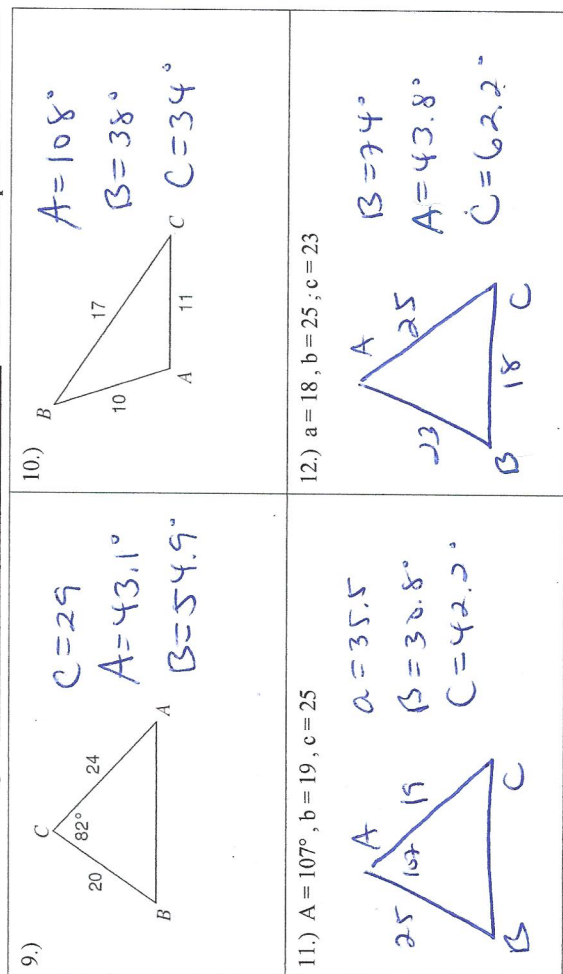 9.)
C
82°
20
24
B
A
C = 29
A = 43.1°
B = 54.9°
10.)
B
10
17
A
11
C
A = 108°
B = 38°
C = 34°
11.) A = 107°, b = 19 , c = 25
A
107
25
19
B
C
a = 35.5
B = 30.8°
C = 42.2°
12.) a = 18 , b = 25 ; c = 23
A
23
25
B
18
C
B = 74°
A = 43.8°
C = 62.2°